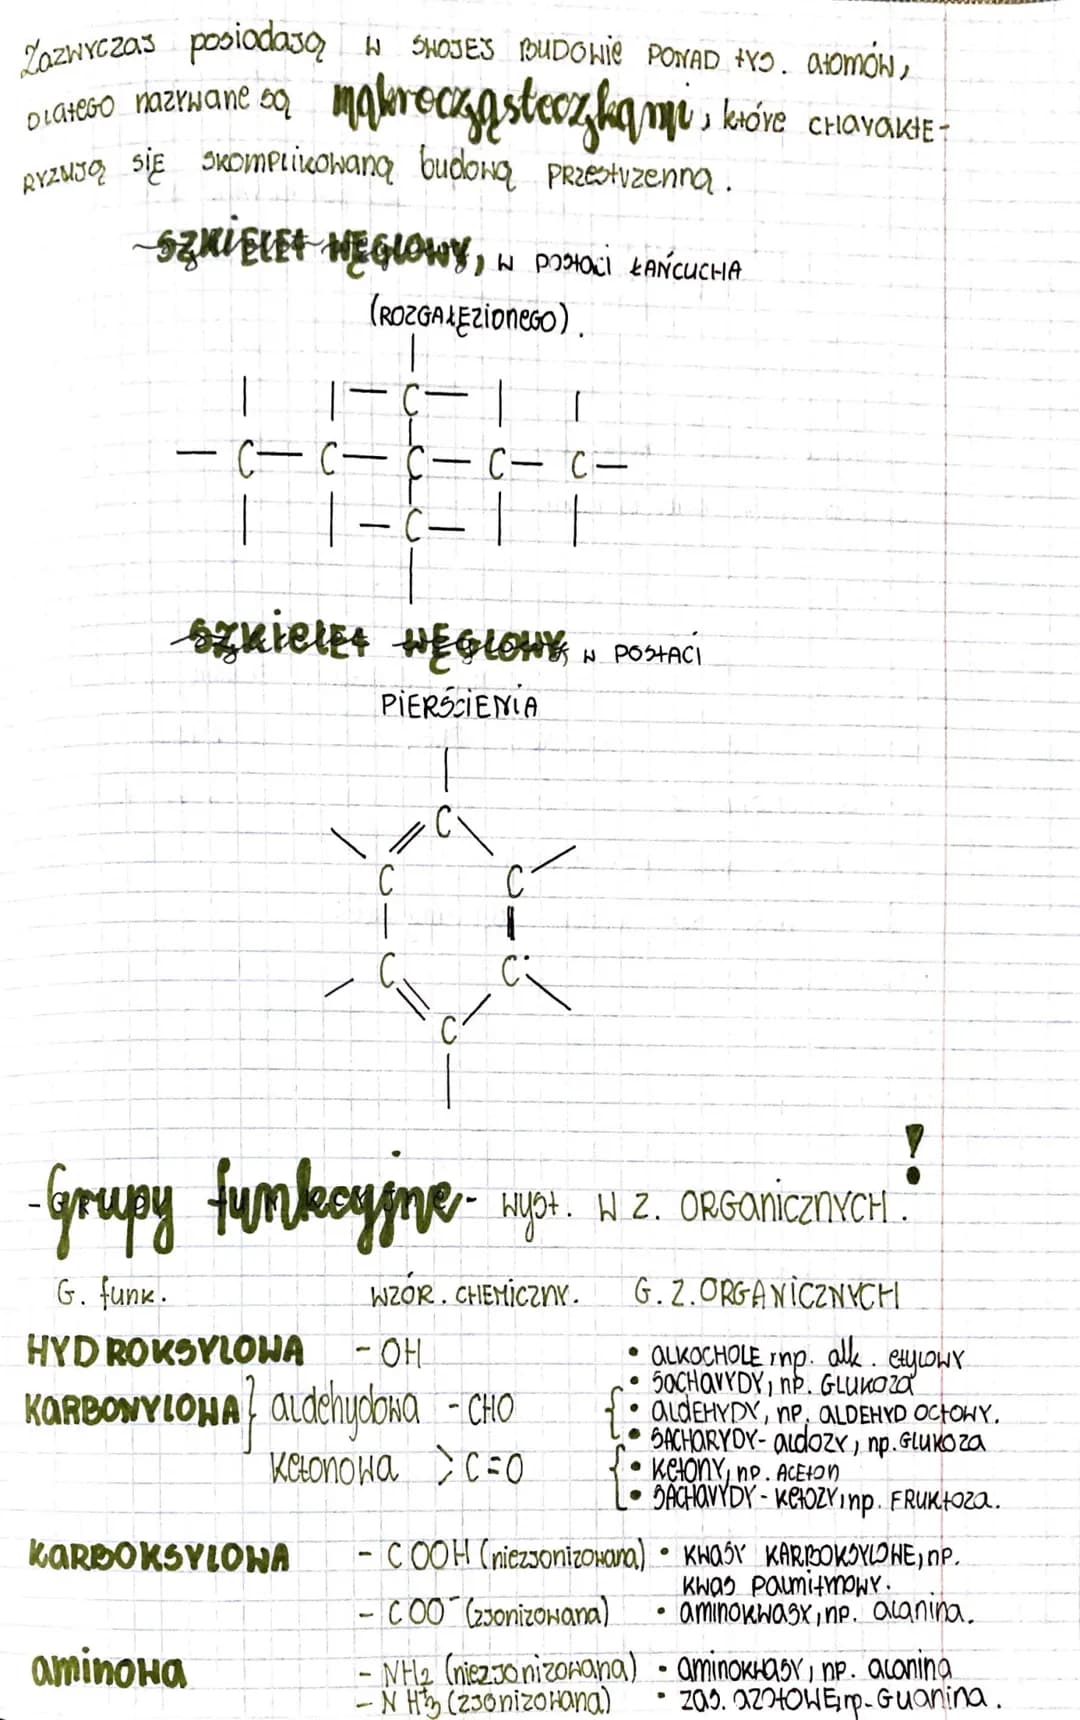 Zazwyczaj posiadają w swojej budowie ponad tys. atomów,
dlatego nazywane są makrocząsteczkami, które charakte-
ryzują się skomplikowaną budową przestrzenną.
SZKIELET WĘGLOWY, w postaci ŁAŃCUCHA
(ROZGAŁĘZIONEGO).
C
C C C C C
C
SZKIELET WĘGLOWY, w POSTACI
PIERŚCIENIA
C
C C
C C
C
-Grupy funkcyjne- wyst. w z. ORGANICZNYCH!
G. funk. WZÓR. CHEMICZNY. G. Z. ORGANICZNYCH
HYDROKSYLOWA -OH • ALKOCHOLE, np. alk. etylowy
• SACHARYDY, np. GLUKOZA
KARBONYLOWA } aldehydowa -CHO { • ALDEHYDY, np. ALDEHYD OCTOWY.
• SACHARYDY- aldozy, np. GLUKOZA
ketonowa >C=O { • KETONY, np. ACETON
• SACHARYDY - KETOZY, np. FRUKTOZA.
KARBOKSYLOWA - COOH (niezjonizowana) • KWASY KARBOKSYLOWE, np.
KWAS PALMITYNOWY.
- COO⁻ (zjonizowana) • aminokwasy, np. alanina.
aminowa - NH₂ (niezjonizowana) • aminokwasy, np. alanina
- NH⁺₃ (zjonizowana) • zas. AZOTOWE, np- Guanina.